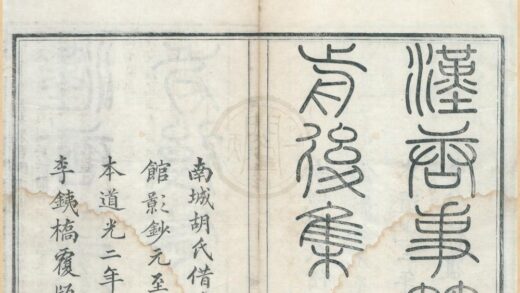 漢唐事
前後集
南城胡氏借
館影鈔元至
本道光二年
李銕橋覆